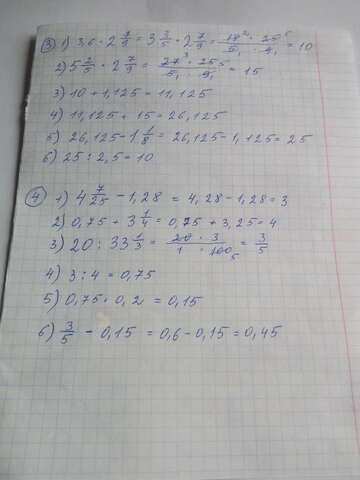 ③ 1) 3,6 · 2 7/9 = 3 3/5 · 2 7/9 = 18² · 25⁵ / 5₁ · 9₁ = 10
2) 5 2/5 · 2 7/9 = 27³ · 25⁵ / 5₁ · 9₁ = 15
3) 10 + 1,125 = 11,125
4) 11,125 + 15 = 26,125
5) 26,125 - 1 1/8 = 26,125 - 1,125 = 25
6) 25 : 2,5 = 10
④ 1) 4 7/25 - 1,28 = 4,28 - 1,28 = 3
2) 0,75 + 3 1/4 = 0,75 + 3,25 = 4
3) 20 : 33 1/3 = 20 · 3 / 1 · 100₅ = 3/5
4) 3 : 4 = 0,75
5) 0,75 · 0,2 = 0,15
6) 3/5 - 0,15 = 0,6 - 0,15 = 0,45